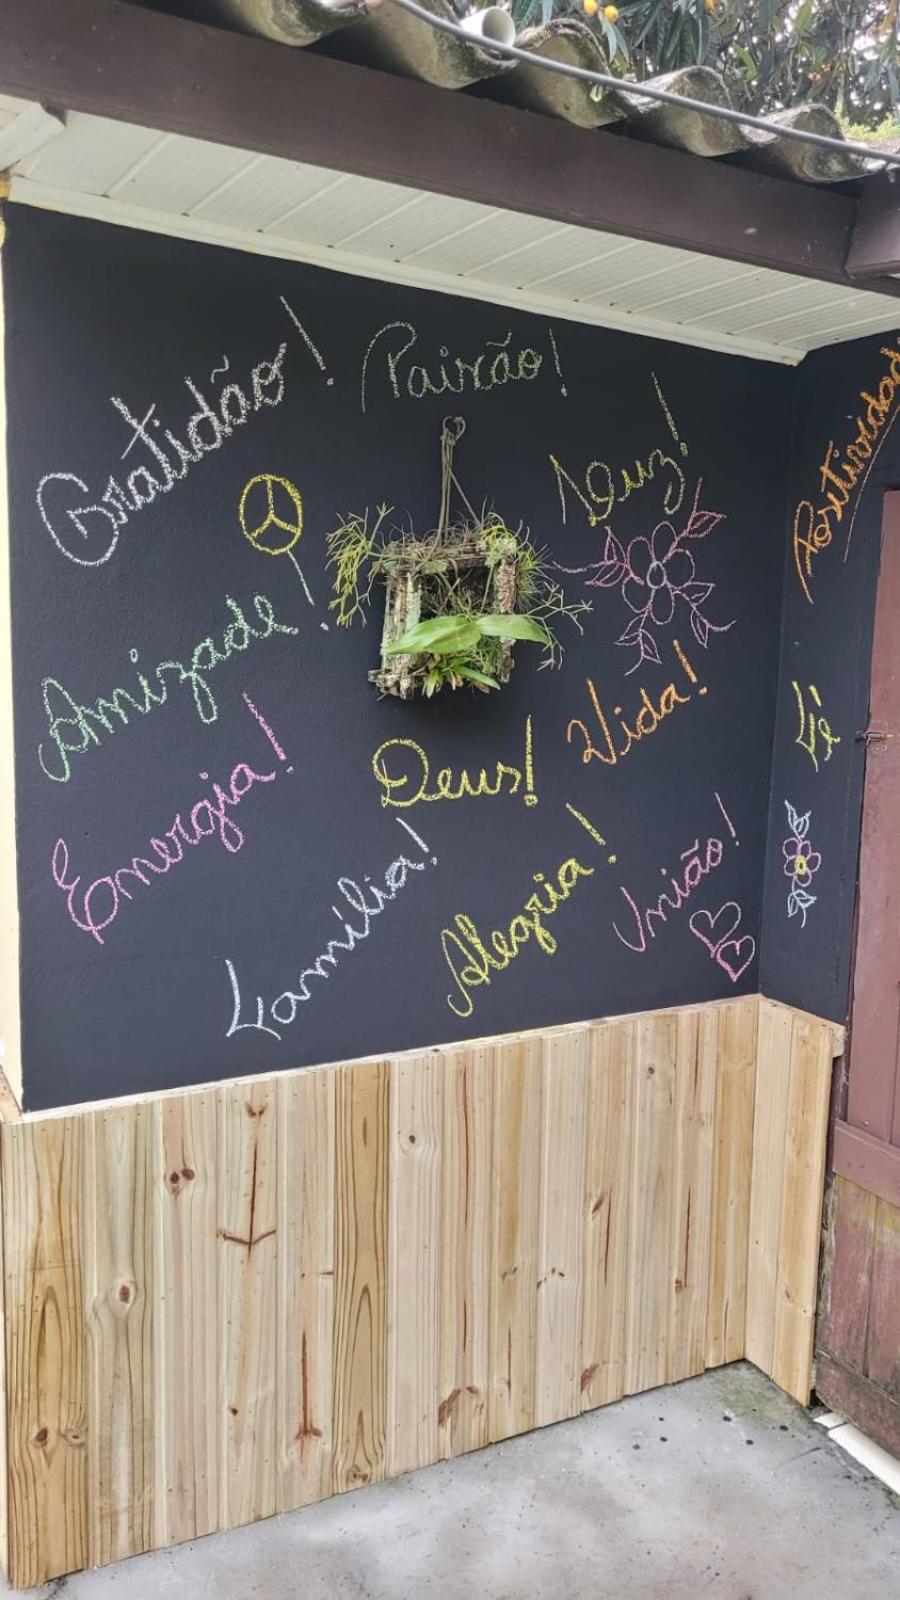 Gratidão!
Paixão!
Luz!
Positividade
Amizade!
Vida!
Fé
Energia!
Deus!
Família!
Alegria!
União!